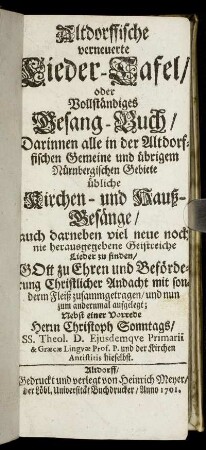 Altdorffische
verneuerte
Lieder-Tafel/
oder
Vollständiges
Gesang-Buch/
Darinnen alle in der Altdorf-
fischen Gemeine und übrigem
Nürnbergischen Gebiete
übliche
Kirchen- und Hauß-
Gesänge/
auch darneben viel neue noch
nie herausgegebene Geistreiche
Lieder zu finden/
GOtt zu Ehren und Beförde-
rung Christlicher Andacht mit son-
derm Fleiß zusammgetragen/ und nun
zum andernmal aufgelegt;
Nebst einer Vorrede
Herrn Christoph Sonntags/
SS. Theol. D. Ejusdemqve Primarii
& Græcæ Lingvæ Prof. P. und der Kirchen
Antistitis hieselbst.
Altdorff/
Gedruckt und verlegt von Heinrich Meyer/
der Löbl. Universität Buchdrucker/ Anno 1701.